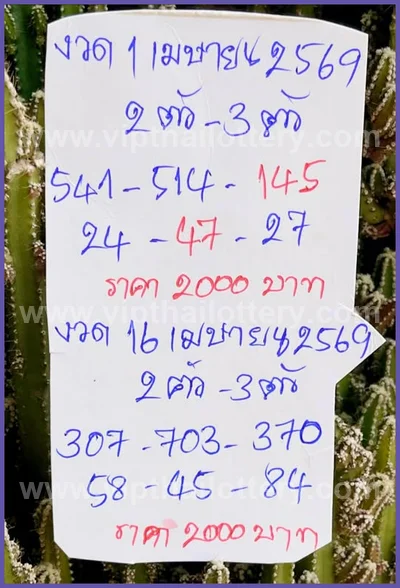 งวด 1 เมษายน 2569
2 ตัว - 3 ตัว
www.vipthailottery.com
541 - 514 - 145
24 - 47 - 27
ราคา 2000 บาท
www.vipthailottery.com
งวด 16 เมษายน 2569
2 ตัว - 3 ตัว
307 - 703 - 370
58 - 45 - 84
www.vipthailottery.com
ราคา 2000 บาท